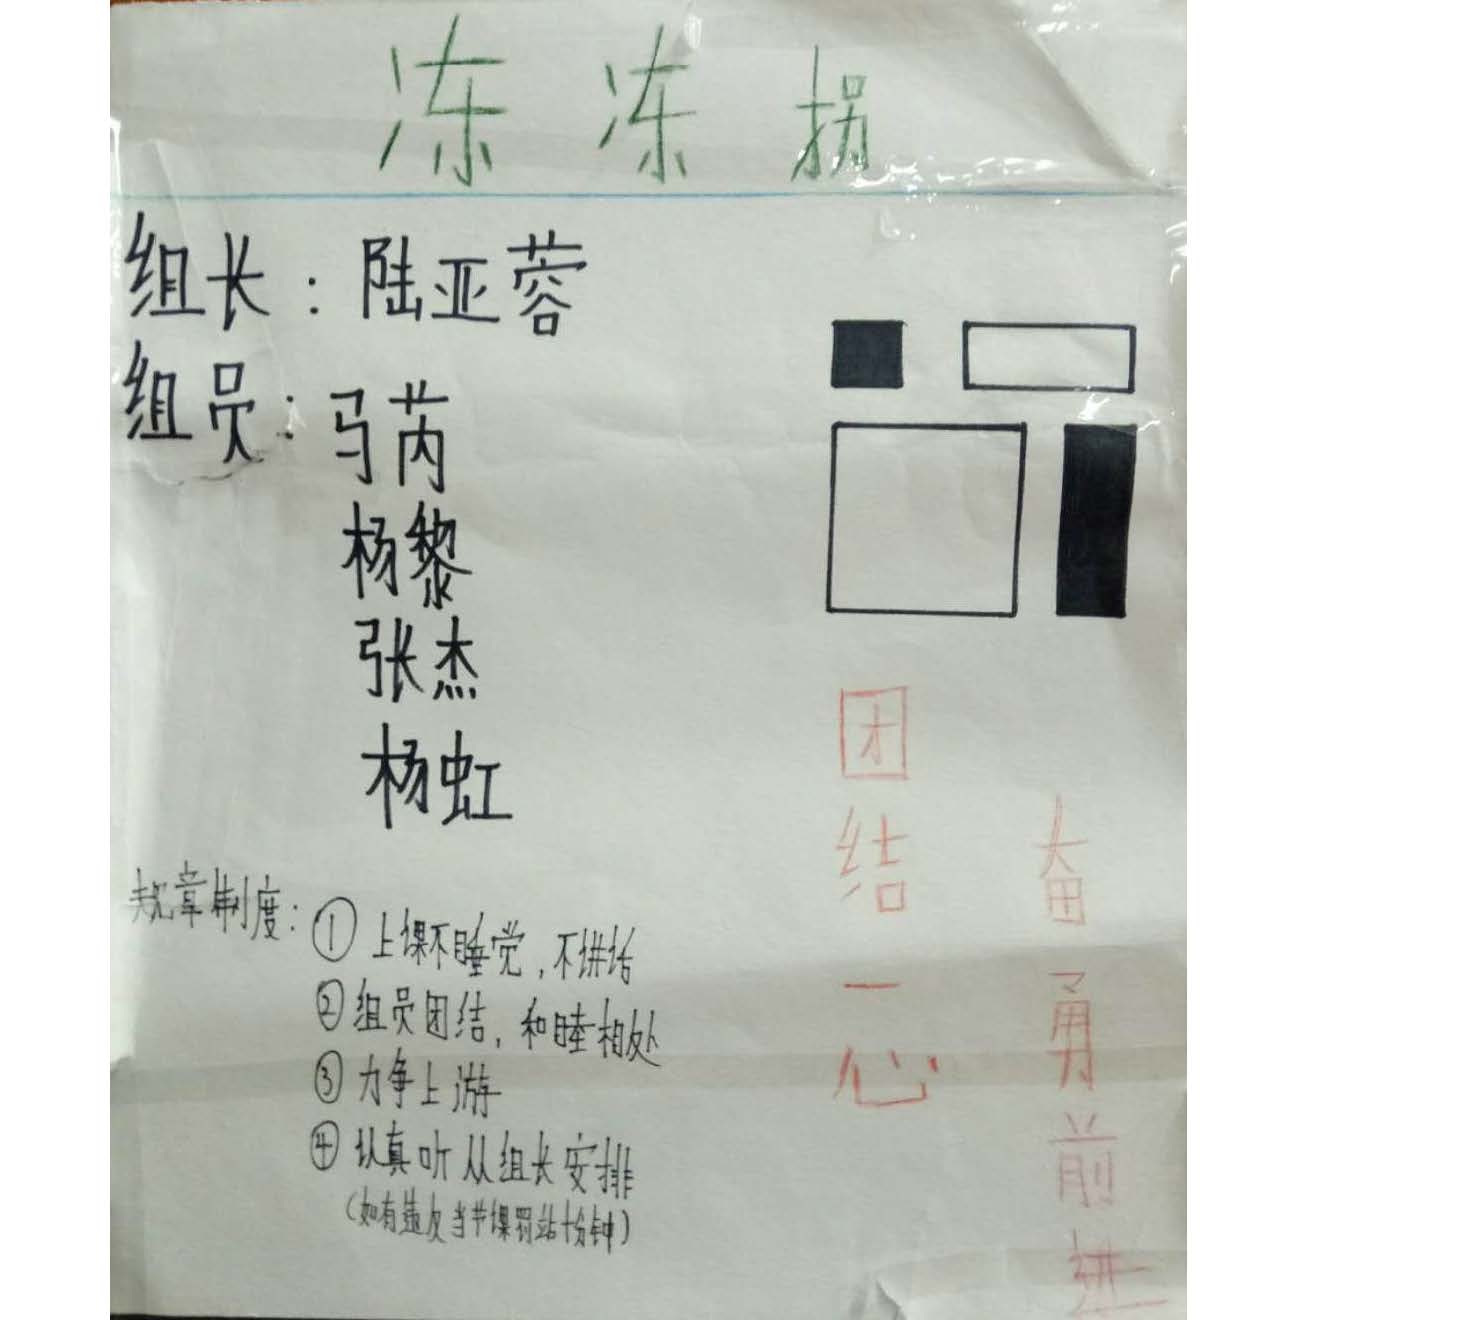 冻冻拐
组长：陆亚蓉
组员：马芮
杨黎
张杰
杨虹
规章制度：① 上课不睡觉，不讲话
② 组员团结，和睦相处
③ 力争上游
④ 认真听从组长安排
（如有违反当节课罚站十分钟）
团结一心
奋勇前进